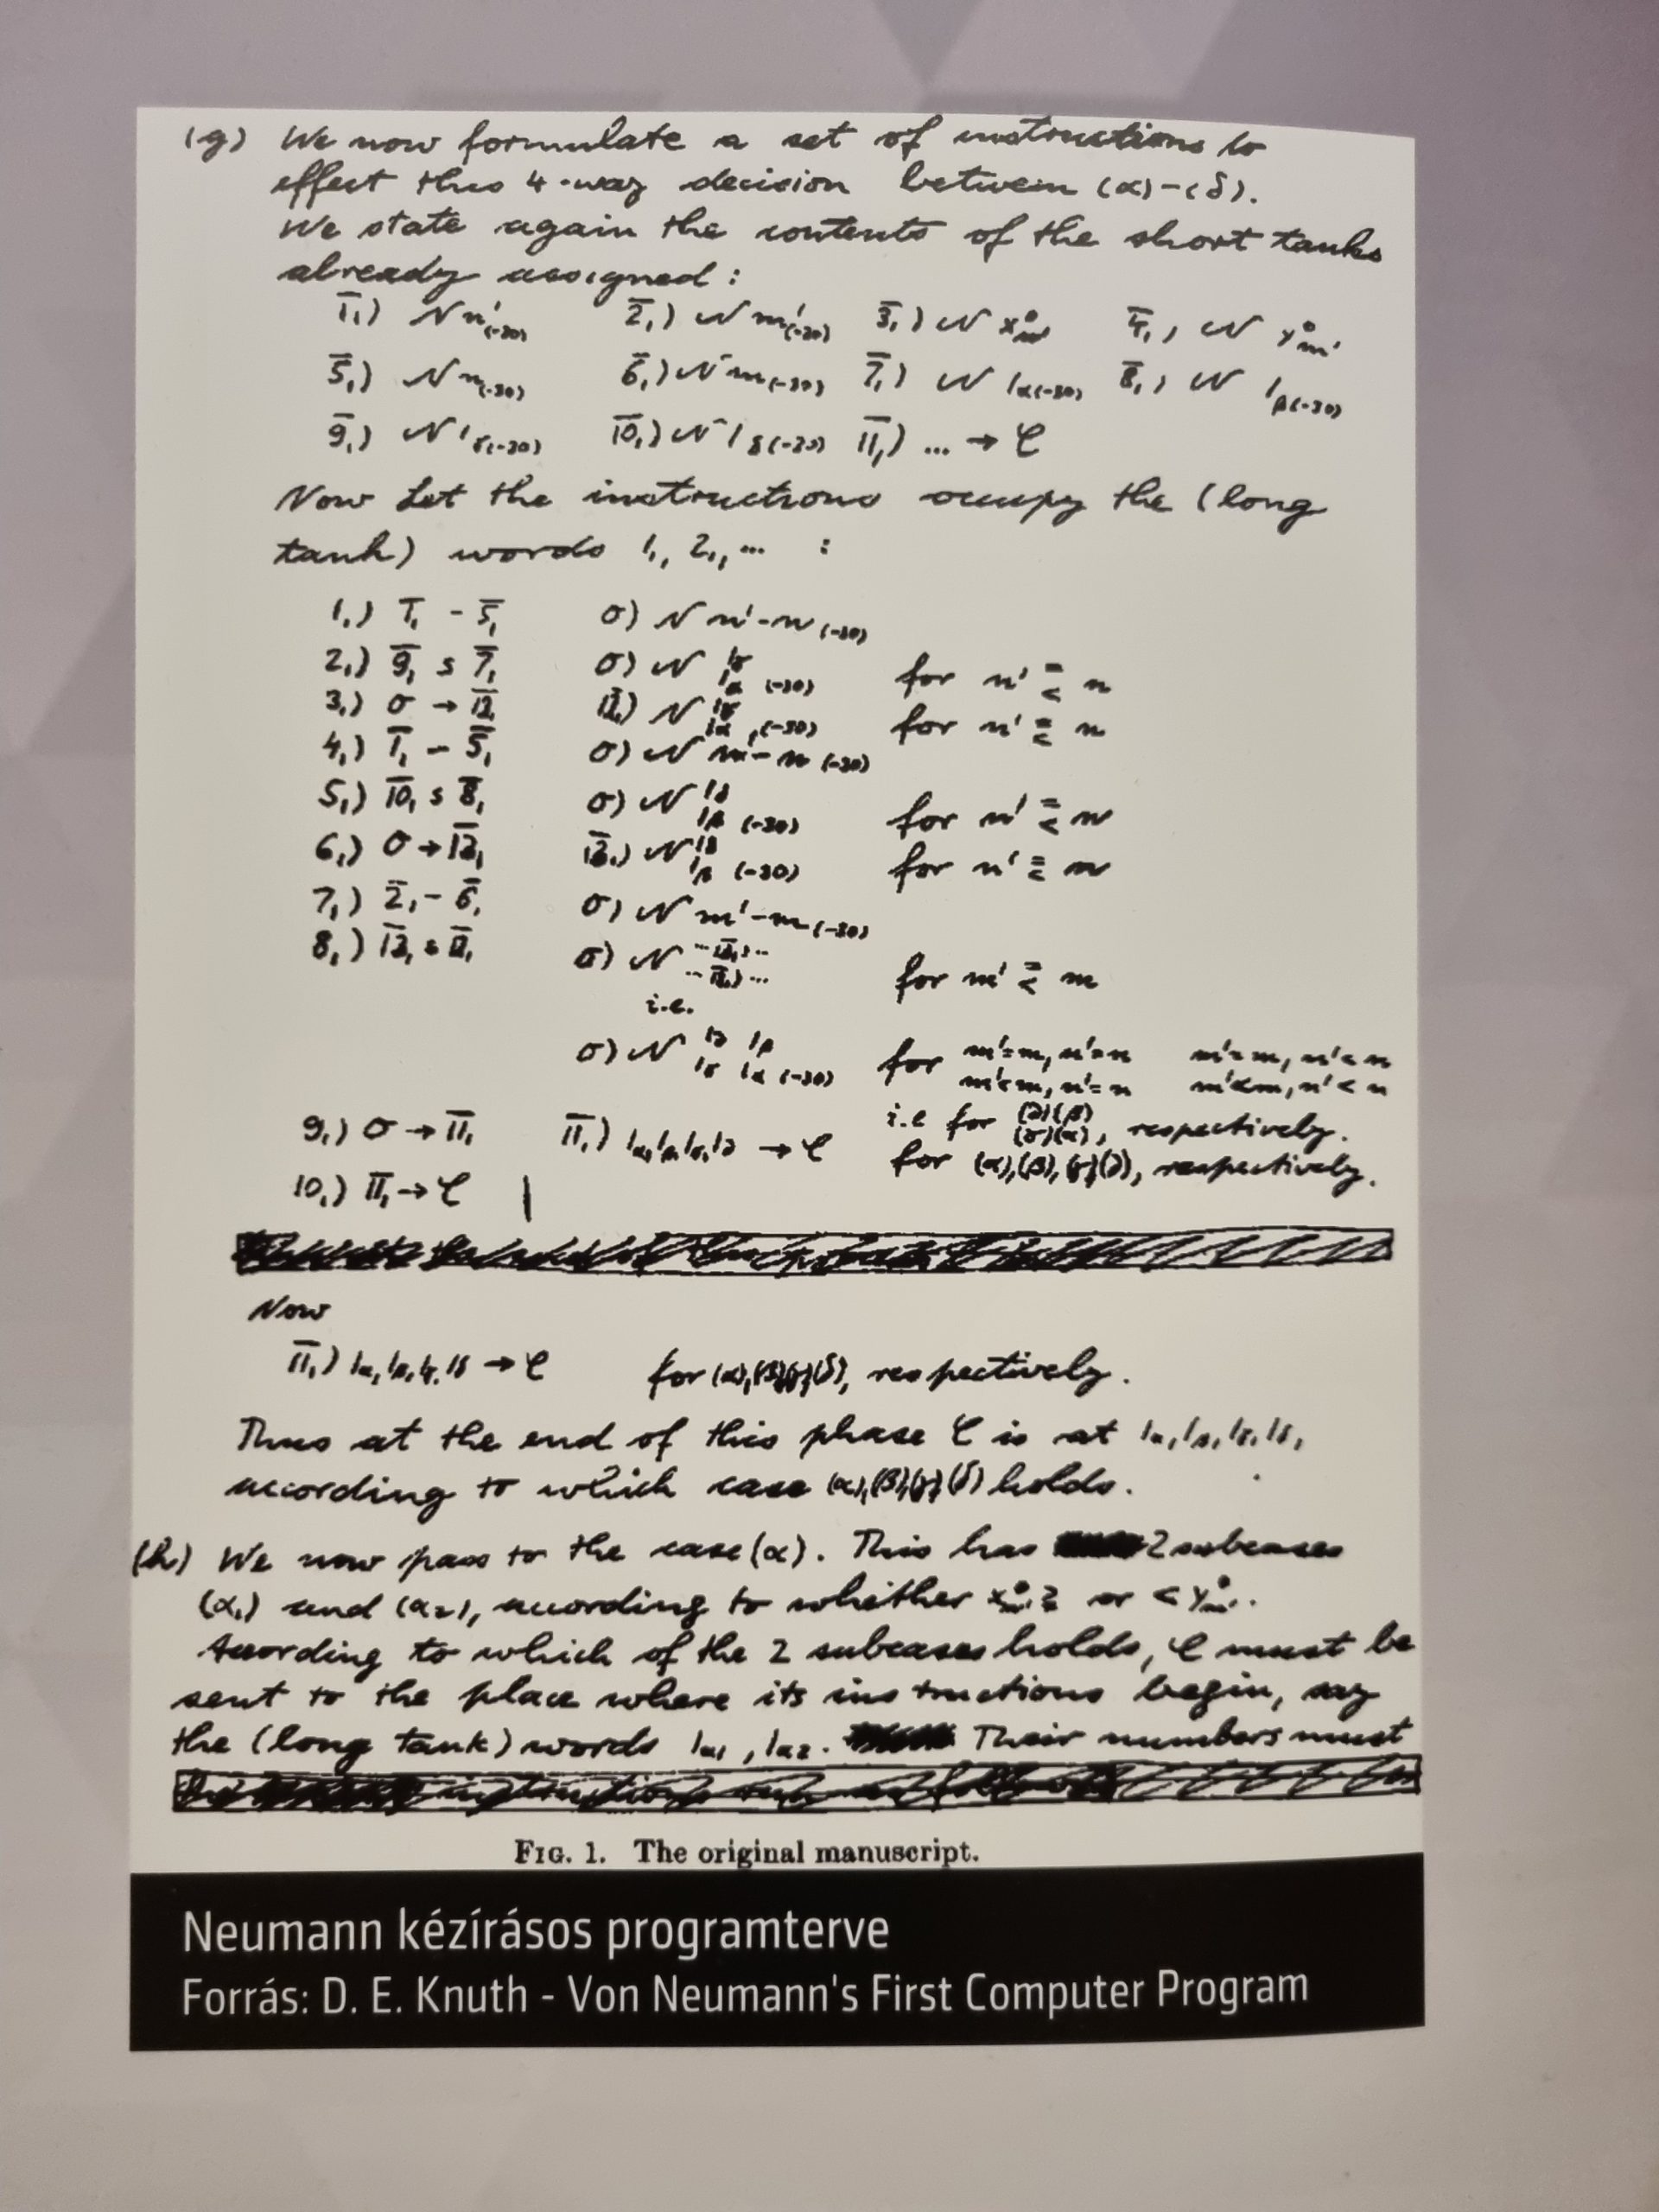 (g) We now formulate a set of instructions to
effect this 4-way decision between (α)-(δ).
We state again the contents of the short tanks
already assigned:
1̄₁) N n'(-30) 2̄₁) N m'(-30) 3̄₁) N x°ₙ' 4̄₁) N y°ₘ'
5̄₁) N n(-30) 6̄₁) N m(-30) 7̄₁) N 1α(-30) 8̄₁) N 1β(-30)
9̄₁) N 1γ(-30) 10̄₁) N 1δ(-30) 11̄₁) ... → C
Now let the instructions occupy the (long
tank) words 1₁, 2₁, ... :
1₁) 1̄₁ - 5̄₁ O) N n'-n(-30)
2₁) 9̄₁ s 7̄₁ O) N 1γ 1α (-30) for n' ≥ < n
3₁) O → 12̄₁ 12̄₁) N 1γ 1α (-30) for n' ≥ < n
4₁) 1̄₁ - 5̄₁ O) N n'-n(-30)
5₁) 10̄₁ s 8̄₁ O) N 1δ 1β (-30) for n' ≥ < n
6₁) O → 13̄₁ 13̄₁) N 1δ 1β (-30) for n' ≥ < n
7₁) 2̄₁ - 6̄₁ O) N m'-m(-30)
8₁) 13̄₁ s 12̄₁ O) N ...13̄₁)... ...12̄₁)... for m' ≥ < m
i.e.
O) N 1δ 1β for m'=m, n'=n m'=m, n'<n
1γ 1α (-30) m'<m, n'=n m'<m, n'<n
i.e for (δ)(β)
(γ)(α), respectively.
9₁) O → 11̄₁ 11̄₁) 1α,1β,1γ,1δ → C for (α),(β),(γ)(δ), respectively.
10₁) 11̄₁ → C |
Now
11̄₁) 1α,1β,1γ,1δ → C for (α),(β)(γ)(δ), respectively.
Thus at the end of this phase C is at 1α,1β,1γ,1δ,
according to which case (α),(β),(γ)(δ) holds.
(h) We now pass to the case (α). This has 2 subcases
(α₁) and (α₂), according to whether x°ₙ' ≥ or < y°ₘ'.
According to which of the 2 subcases holds, C must be
sent to the place where its instructions begin, say
the (long tank) words 1α1, 1α2. Their numbers must
FIG. 1. The original manuscript.
Neumann kézírásos programterve
Forrás: D. E. Knuth - Von Neumann's First Computer Program